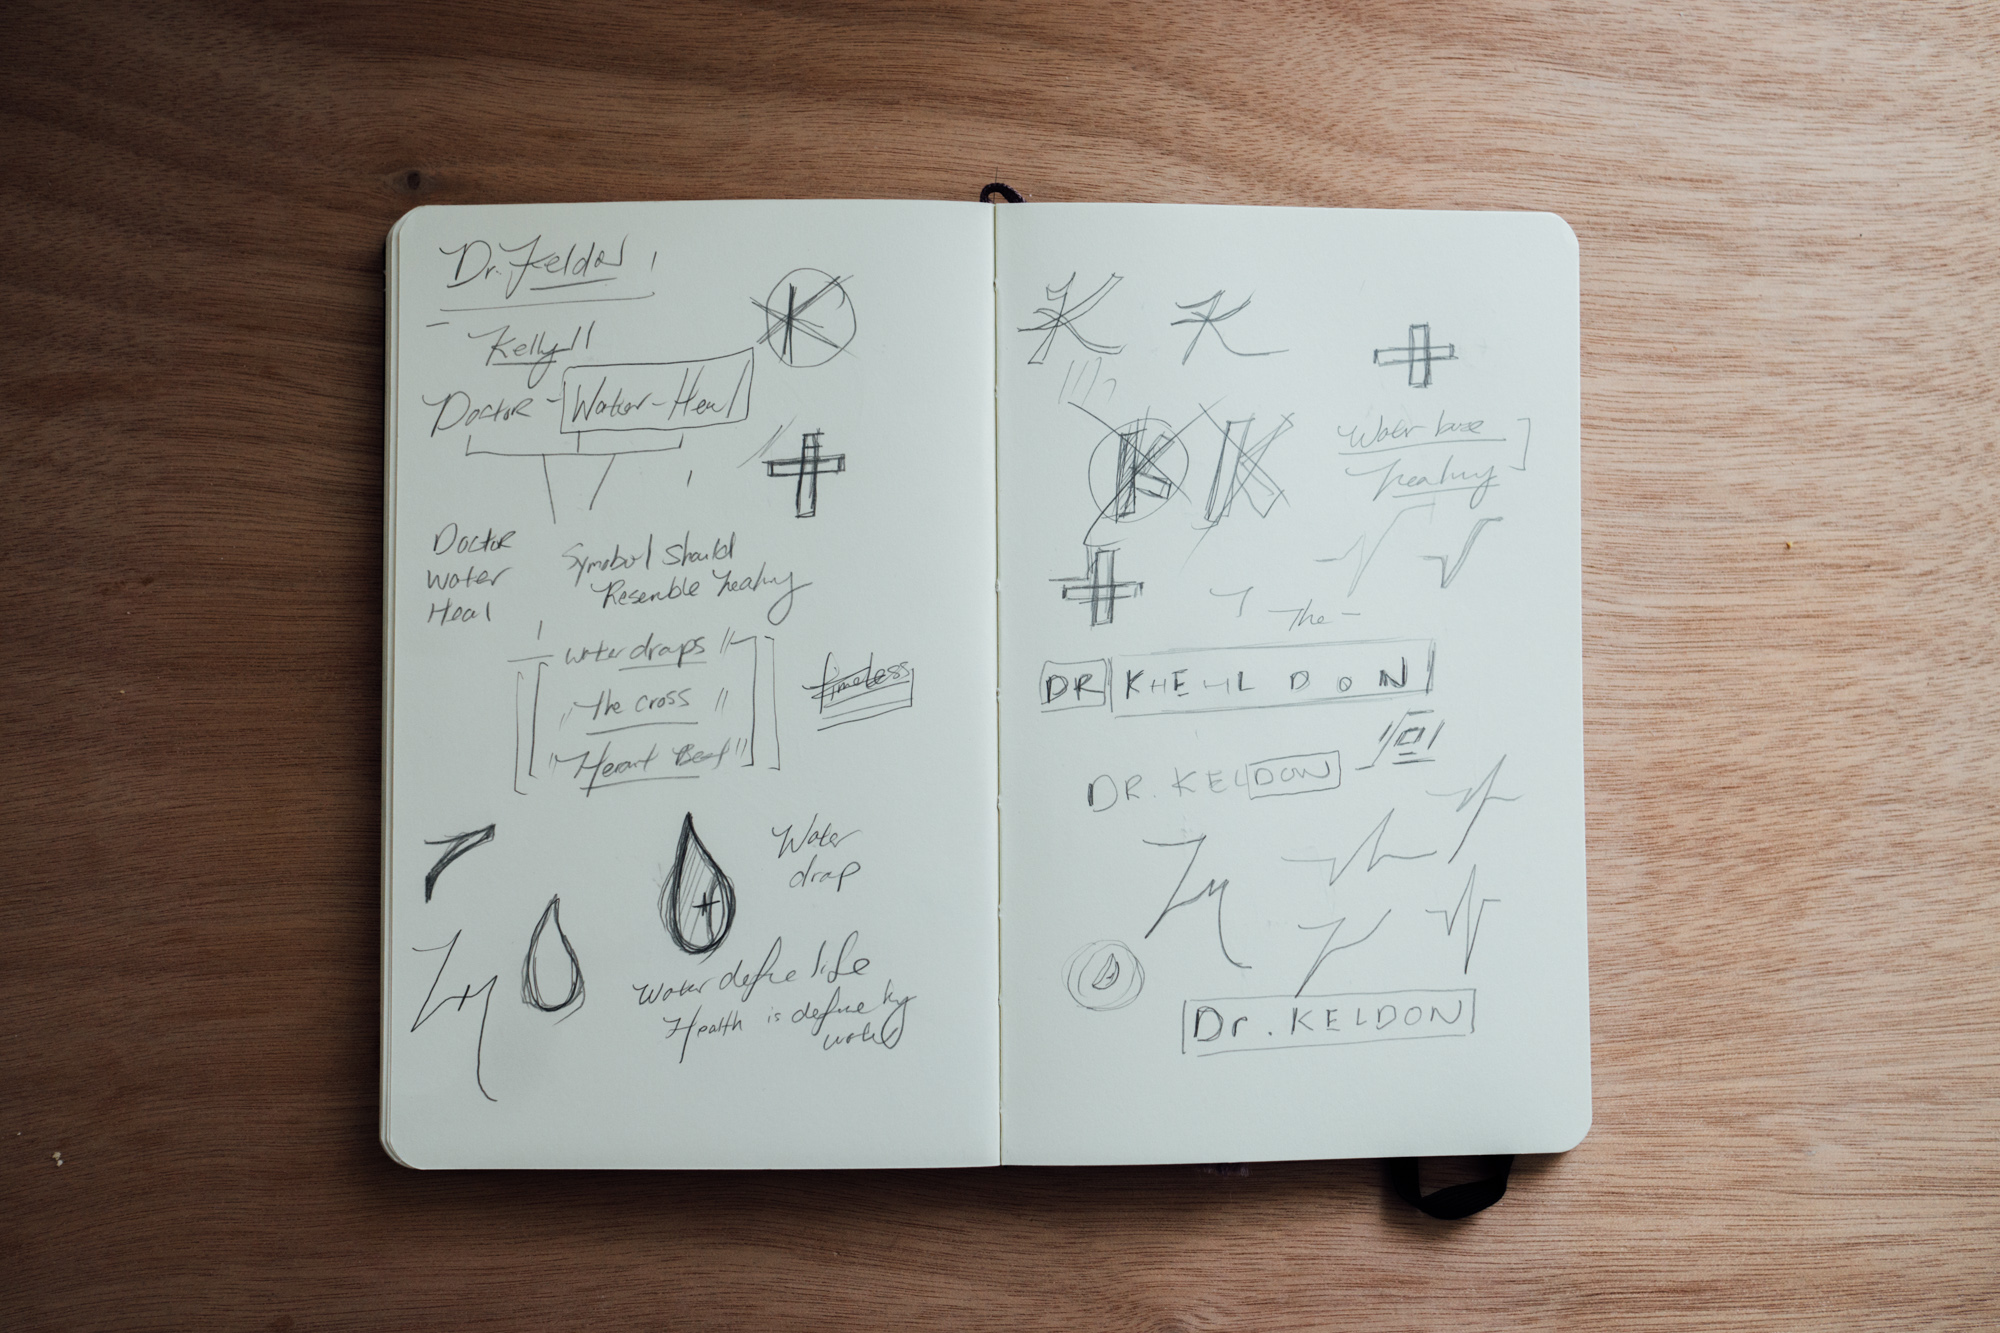 Dr. Keldon
Kelly
Doctor - Water-Heal
Doctor
Water
Heal
Symobol Should
Resemble healing
water draps
"The cross"
"Herart Beat"
timeless
Water
drap
Water define life
Health is define by
water
K
K K
K K
Water base
healing
The -
DR KHEHL DON
DR. KELDON
Dr. KELDON